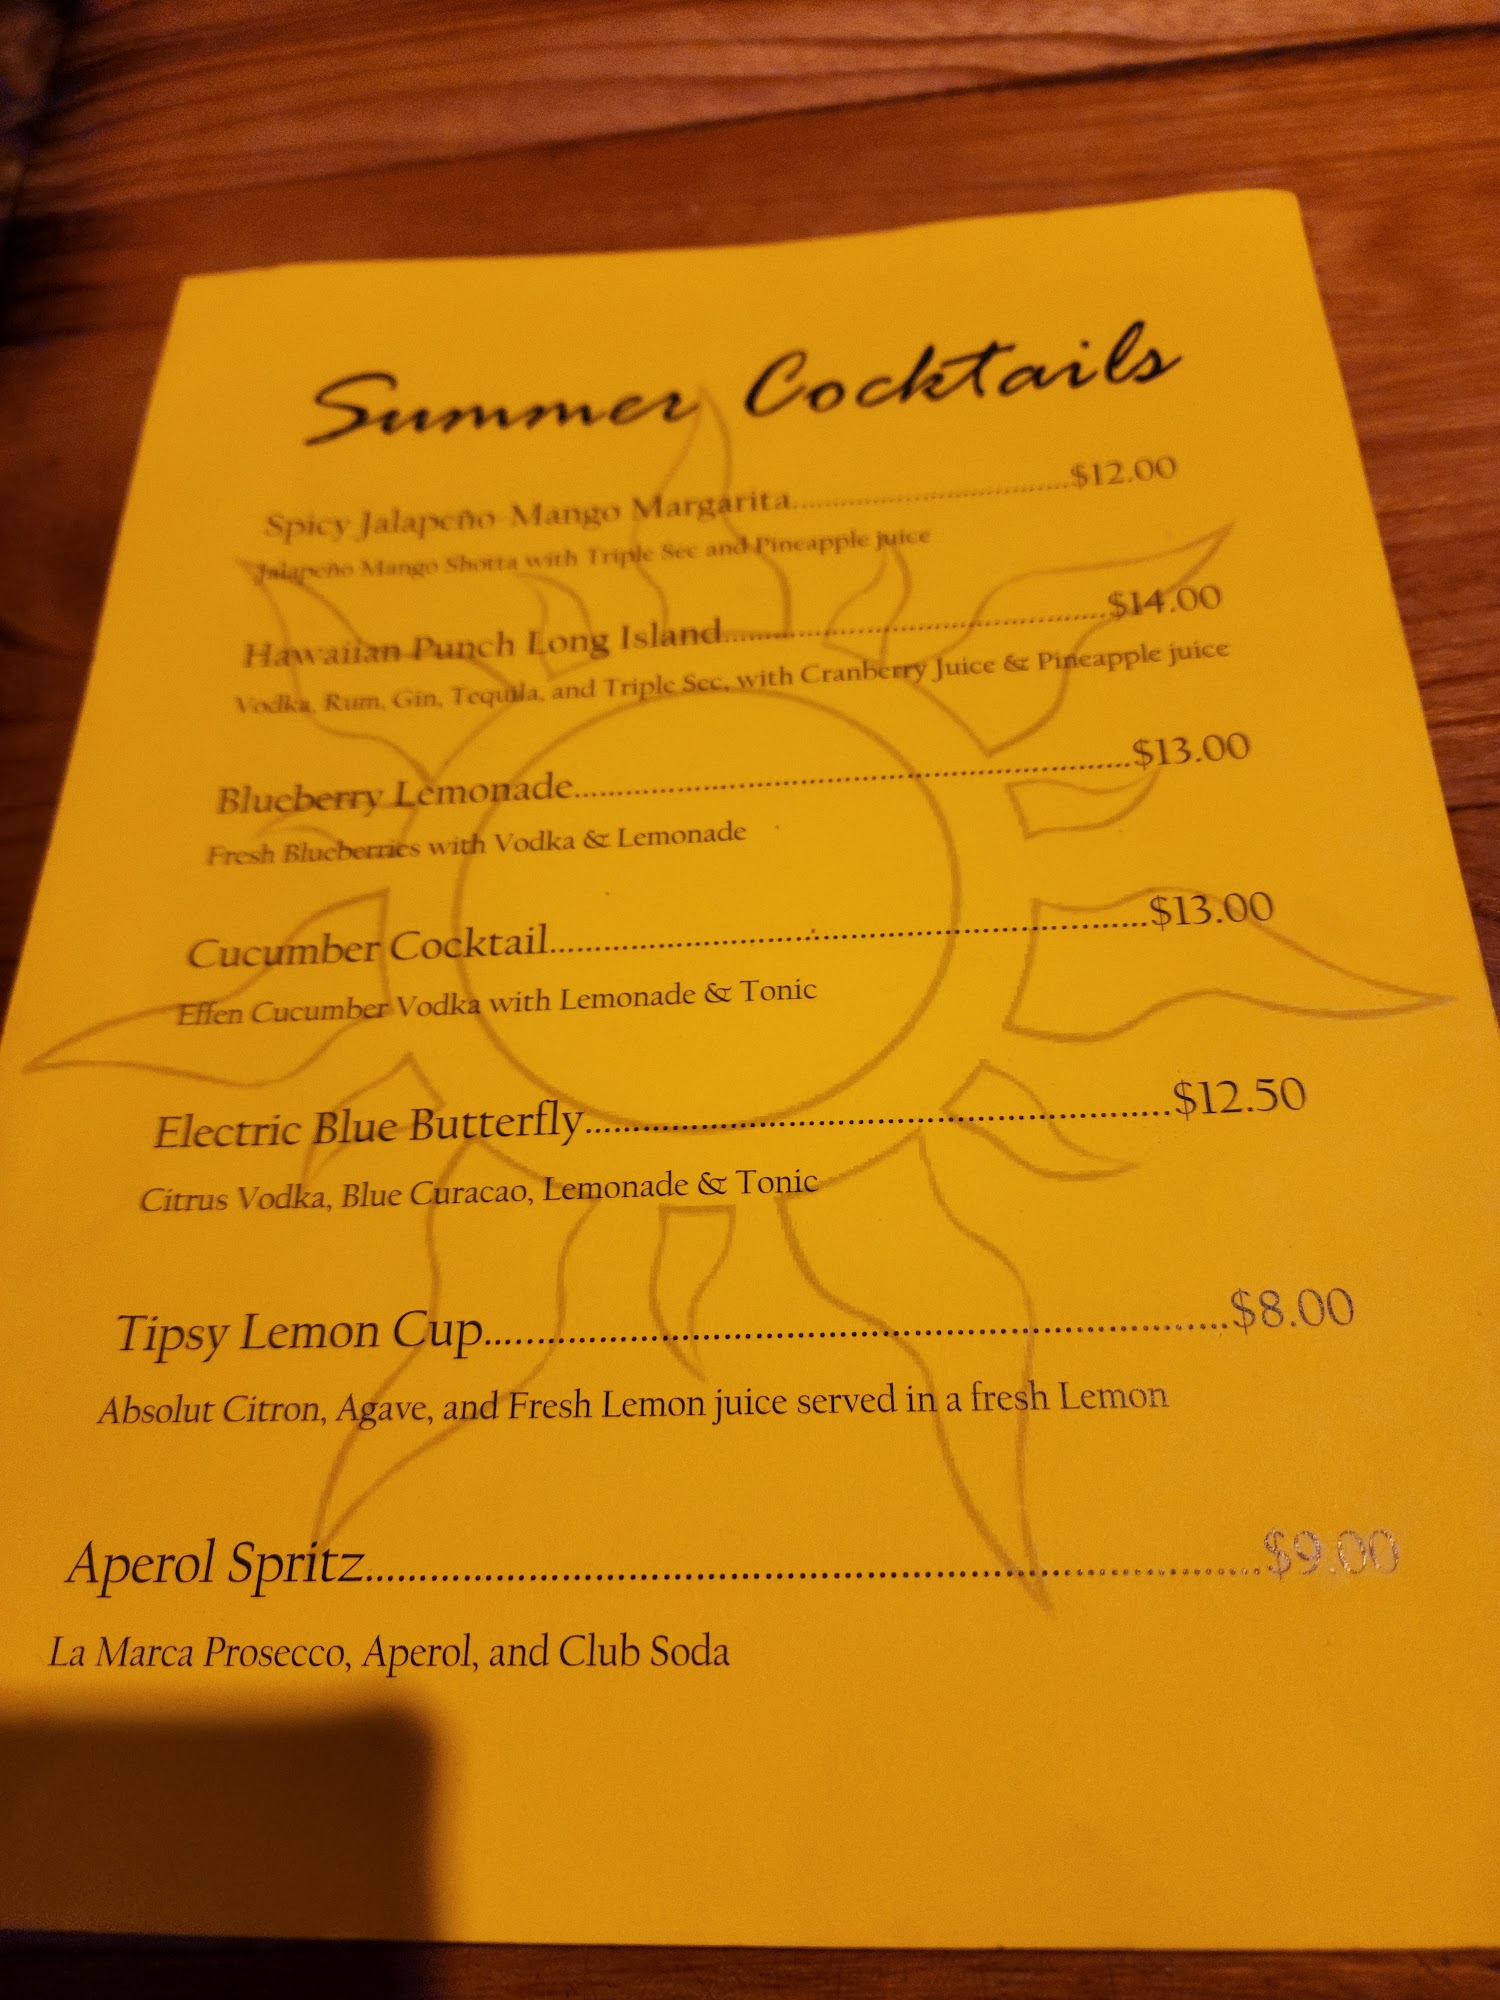 Summer Cocktails
Spicy Jalapeño Mango Margarita....................................$12.00
Jalapeño Mango Shotta with Triple Sec and Pineapple juice
Hawaiian Punch Long Island.................................................$14.00
Vodka, Rum, Gin, Tequila, and Triple Sec, with Cranberry Juice & Pineapple juice
Blueberry Lemonade...............................................................$13.00
Fresh Blueberries with Vodka & Lemonade
Cucumber Cocktail.................................................................$13.00
Effen Cucumber Vodka with Lemonade & Tonic
Electric Blue Butterfly..............................................................$12.50
Citrus Vodka, Blue Curacao, Lemonade & Tonic
Tipsy Lemon Cup......................................................................$8.00
Absolut Citron, Agave, and Fresh Lemon juice served in a fresh Lemon
Aperol Spritz.............................................................................$9.00
La Marca Prosecco, Aperol, and Club Soda